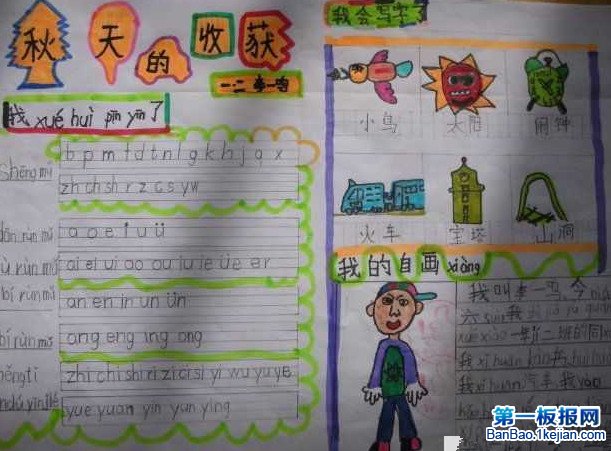 秋天的收获
一.二 李一鸣
我xué huì pīn yīn了
shēng mǔ
b p m f d t n l g k h j q x
zh ch sh r z c s y w
dān yùn mǔ
a o e i u ü
ù yùn mǔ
ai ei ui ao ou iu ie üe er
bí yùn mǔ
an en in un ün
bí yùn mǔ
ang eng ing ong
zhěng tǐ
zhi chi shi ri zi ci si yi wu yu ye
rèn dú yīn jié
yue yuan yin yun ying
我会写字了
小鸟
太阳
闹钟
火车
宝塔
山洞
我的自画xiàng
我叫李一鸣,今
六suì我
xué xiào一年jí二班的同
我xǐ huan
我xǐ huan汽车我
第一板报网
BanBao.1kejian.com